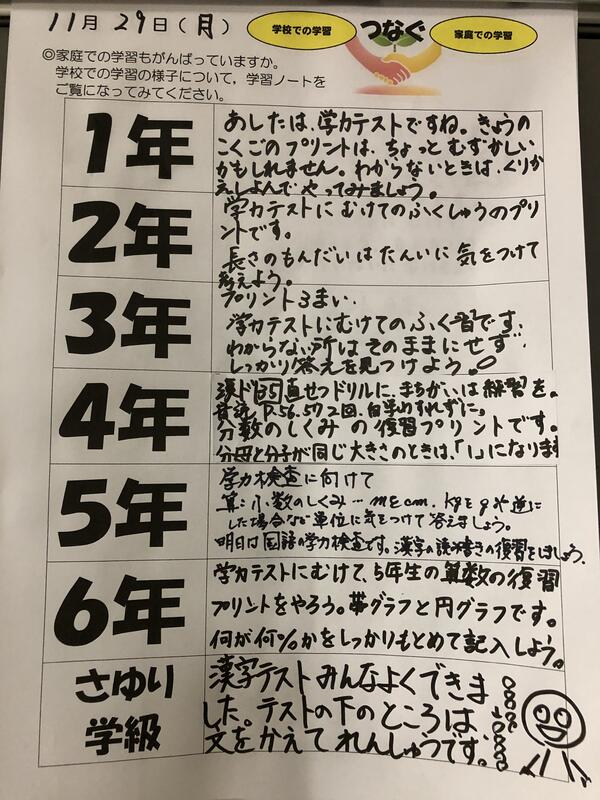 11月29日(月)
学校での学習
つなぐ
家庭での学習
◎家庭での学習もがんばっていますか。
学校での学習の様子について，学習ノートを
ご覧になってみてください。
1年
あしたは、学力テストですね。きょうの
こくごのプリントは、ちょっとむずかしい
かもしれません。わからないときは、くりか
えしよんでやってみましょう。
2年
学力テストにむけてのふくしゅうのプリ
ントです。
長さのもんだいはたんいに気をつけて
考えよう。
3年
プリント3まい、
学力テストにむけてのふく習です。
わからない所はそのままにせず
しっかり答えを見つけよう。
4年
漢ド85直せつドリルに、まちがいは練習を。
音読 P.56.57 2回、自学わすれずに。
分数のしくみの復習プリントです。
分母と分子が同じ大きさのときは、「1」になります
5年
学力検査に向けて
算:小数のしくみ…mとcm、kgとgや逆に
した場合など単位に気をつけて答えましょう。
明日は国語の学力検査です。漢字の読み書きの復習をしましょう。
6年
学力テストにむけて、5年生の算数の復習
プリントをやろう。帯グラフと円グラフです。
何が何%かをしっかりもとめて記入しよう。
さゆり
学級
漢字テストみんなよくできま
した。テストの下のところは、
文をかえてれんしゅうです。